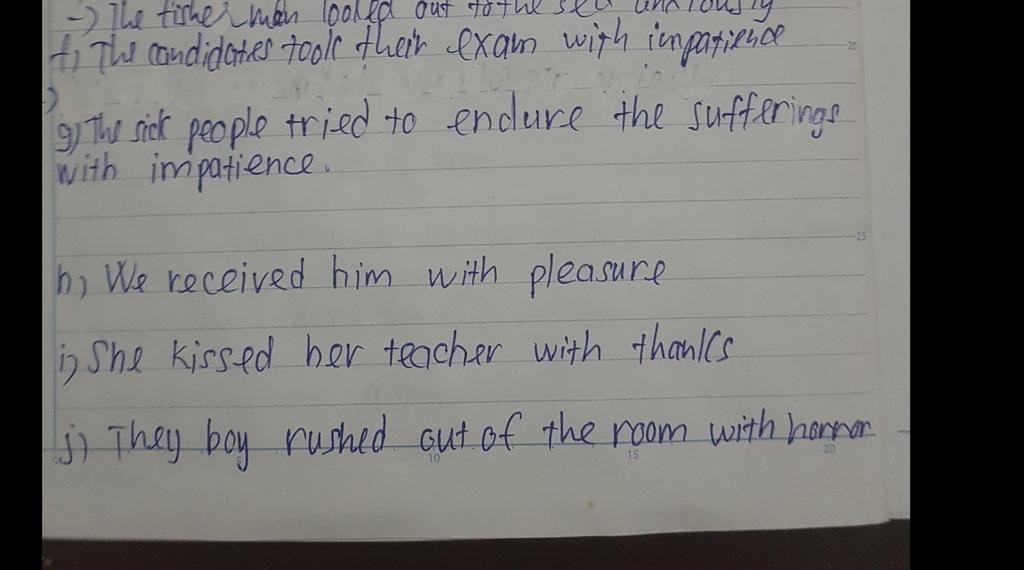 -) The fisherman looked out to the sea anxiously
f) The candidates took their exam with impatience
g) The sick people tried to endure the sufferings
with impatience.
h) We received him with pleasure
i) She kissed her teacher with thanks
j) They boy rushed out of the room with horror
20
25
10 15 20